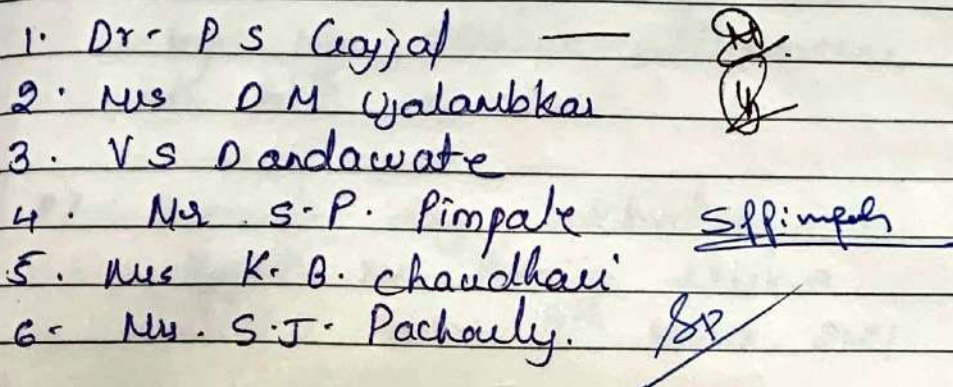 1. Dr. P S Gajjal —
2. Mrs D M Ujalambkar
3. V S Dandawate
4. Mr. S.P. Pimpale SPPimpale
5. Mrs K. B. Chaudhari
6. Mrs. S.J. Pachouly. SP